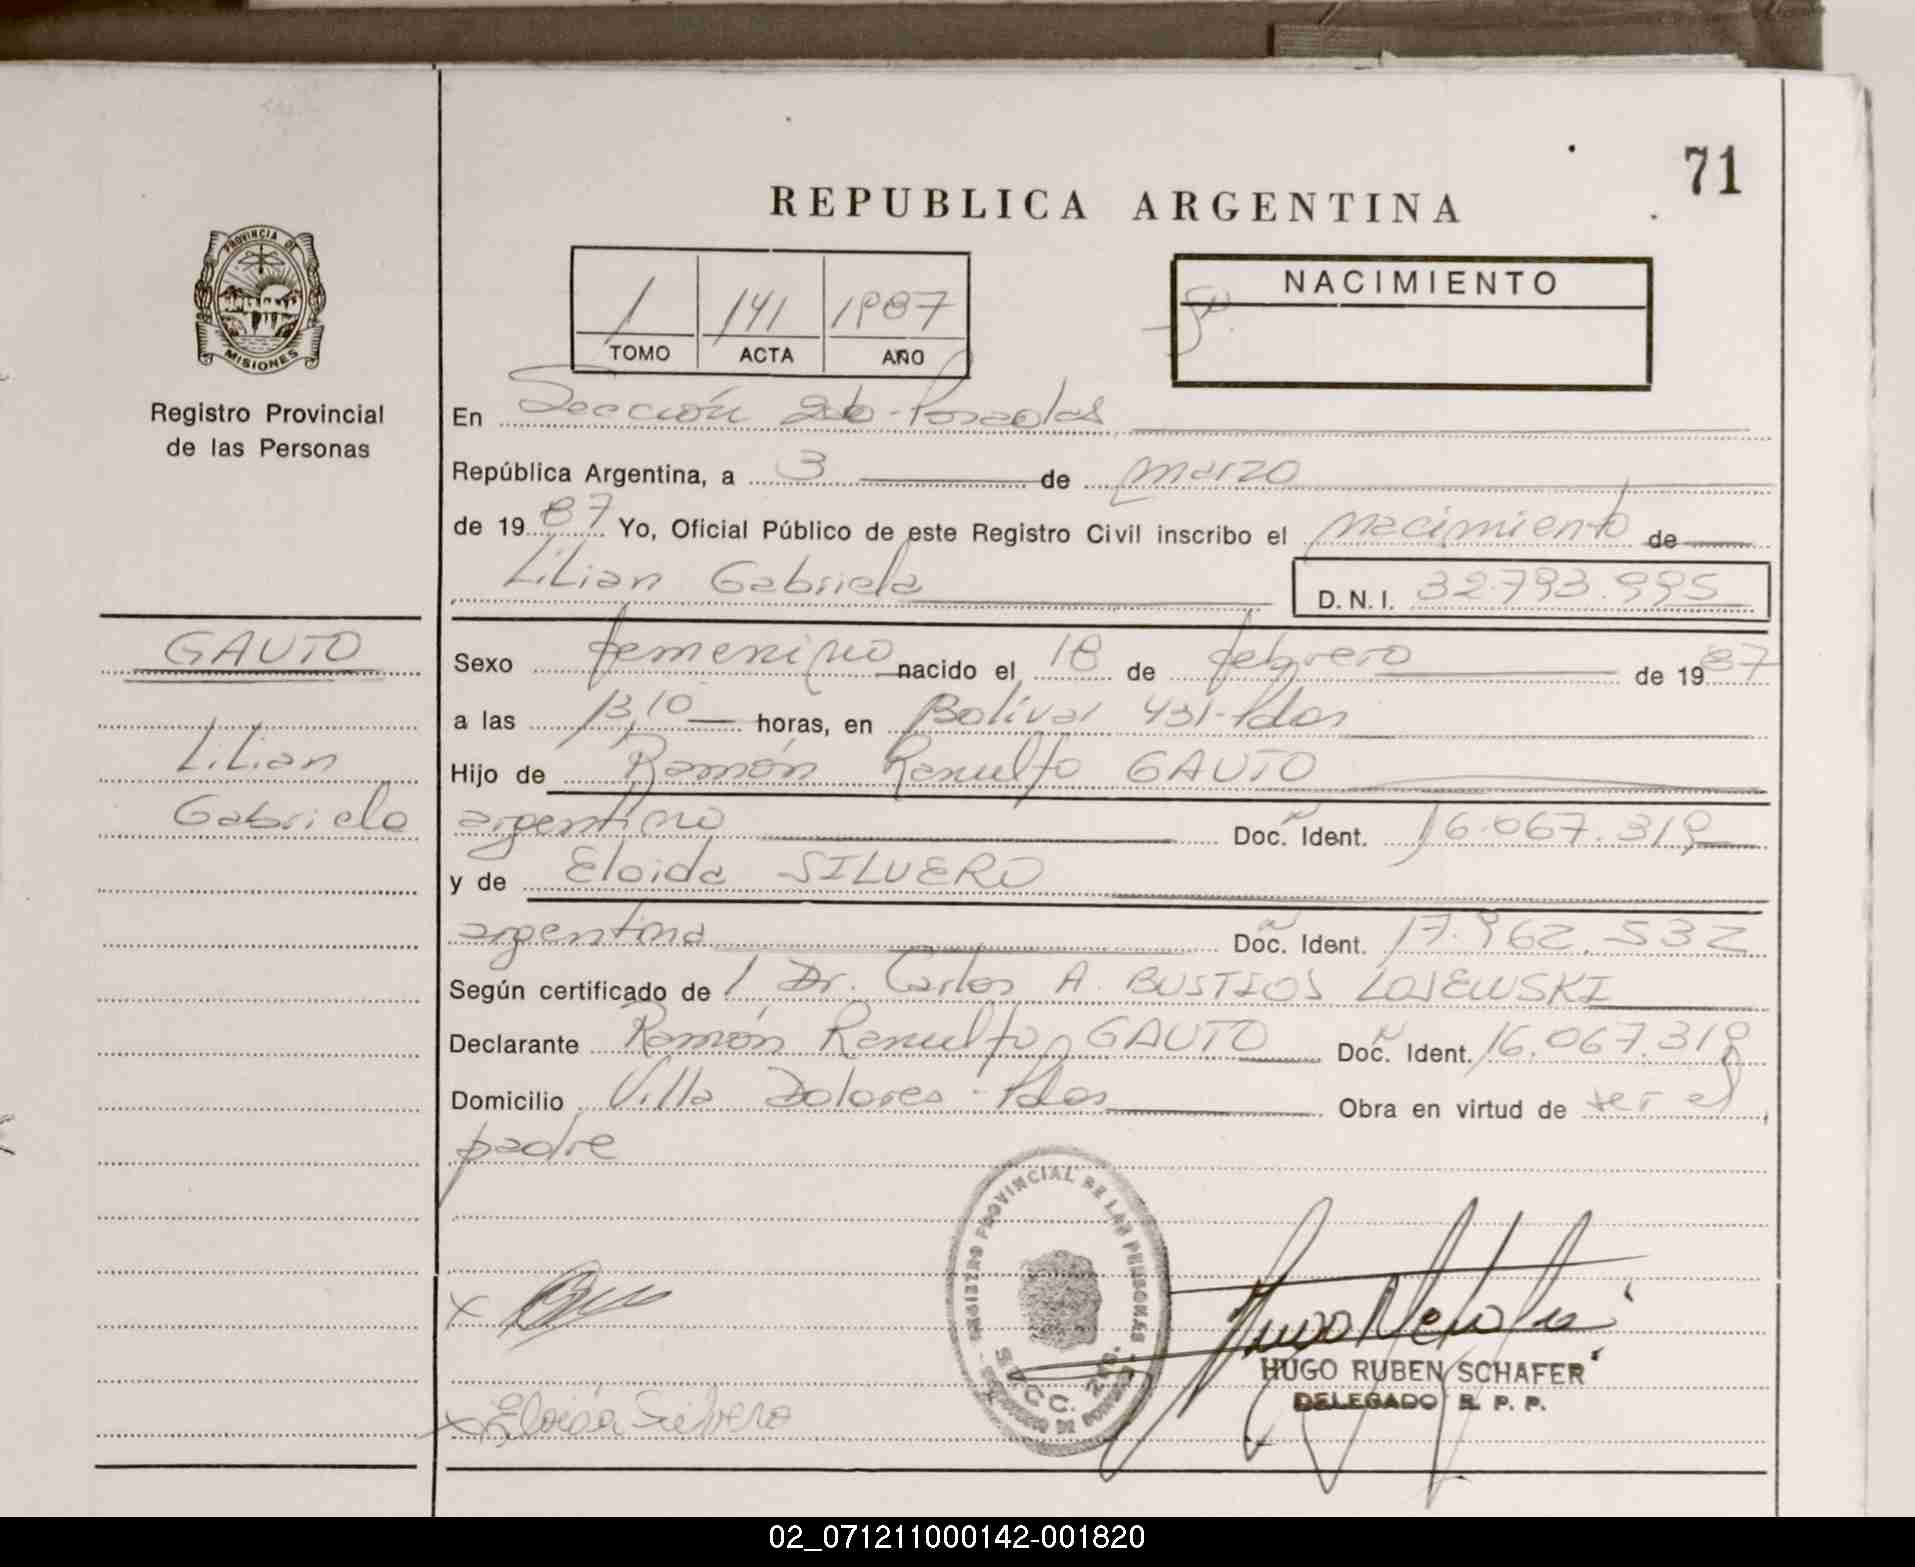 71
REPUBLICA ARGENTINA
PROVINCIA DE
MISIONES
Registro Provincial
de las Personas
1 141 1987
TOMO ACTA AÑO
NACIMIENTO
En Sección 2da - Posadas
República Argentina, a 3 de marzo
de 1987 Yo, Oficial Público de este Registro Civil inscribo el nacimiento de
Lilian Gabriela D.N.I. 32.793.995
GAUTO
Lilian
Gabriela
Sexo femenino nacido el 18 de febrero de 1987
a las 13,10 horas, en Bolívar 431-Pdas
Hijo de Ramón Ranulfo GAUTO
argentino Doc. Ident. 16.067.319
y de Eloida SILVERO
argentina Doc. Ident. 17.962.532
Según certificado de 1 Dr. Carlos A. BUSTIOS LOJEWSKI
Declarante Ramón Ranulfo GAUTO Doc. Ident. 16.067.319
Domicilio Villa Dolores - Pdas Obra en virtud de ser el
padre
REGISTRO PROVINCIAL DE LAS PERSONAS
x
x Eloisa Silvero
HUGO RUBEN SCHAFER
DELEGADO R. P. P.
02_071211000142-001820